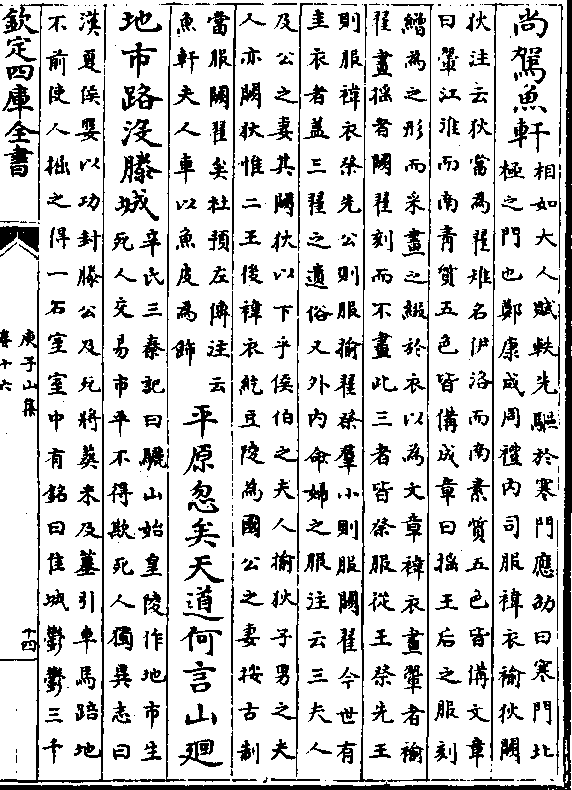 尚駕魚軒
相如大人賦軼先驅於寒門應劭曰寒門北
極之門也鄭康成周禮内司服褘衣褕狄闕
狄注云狄當為翟雉名伊洛而南素質五色皆備文章
曰翬江淮而南青質五色皆備成章曰揺王后之服刻
繒為之形而采畫之綴於衣以為文章褘衣畫翬者褕
翟畫揺者闕翟刻而不畫此三者皆祭服從王祭先王
則服褘衣祭先公則服揄翟祭羣小則服闕翟今世有
圭衣者葢三翟之遺俗又外内命婦之服注云三夫人
及公之妻其闕狄以下乎侯伯之夫人揄狄子男之夫
人亦闕狄惟二王後褘衣紇豆陵為國公之妻按古制
當服闕翟矣杜預左傳注云
魚軒夫人車以魚皮為飾
平原忽矣天道何言山廻
地市路没滕城
辛氏三秦記曰驪山始皇陵作地市生
死人交易市平不得欺死人獨異志曰
漢夏侯嬰以功封滕公及死將葬未及墓引車馬踣地
不前使人掘之得一石室室中有銘曰佳城鬱鬱三千
欽定四庫全書
庾子山集
卷十六
十四